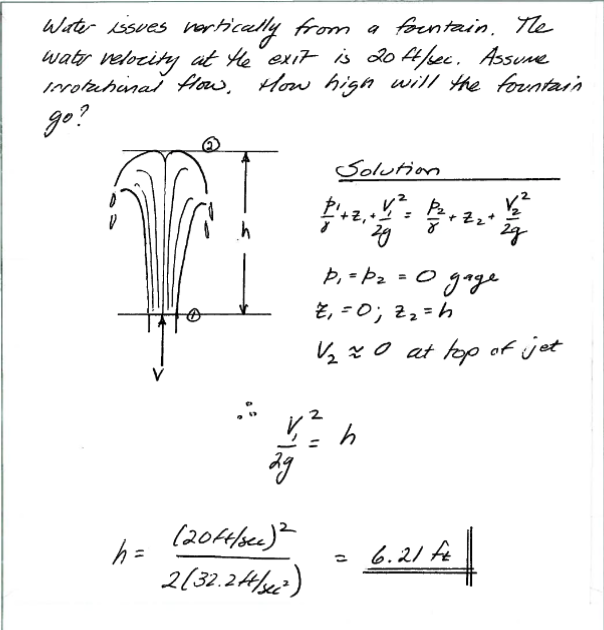 Water issues vertically from a fountain. The
water velocity at the exit is 20 ft/sec. Assume
irrotational flow. How high will the fountain
go?
②
h
①
V
Solution
p₁/γ + z₁ + V₁²/2g = p₂/γ + z₂ + V₂²/2g
p₁ = p₂ = 0 gage
z₁ = 0; z₂ = h
V₂ ≈ 0 at top of jet
∴ V₁²/2g = h
h = (20 ft/sec)²/2(32.2 ft/sec²) = 6.21 ft